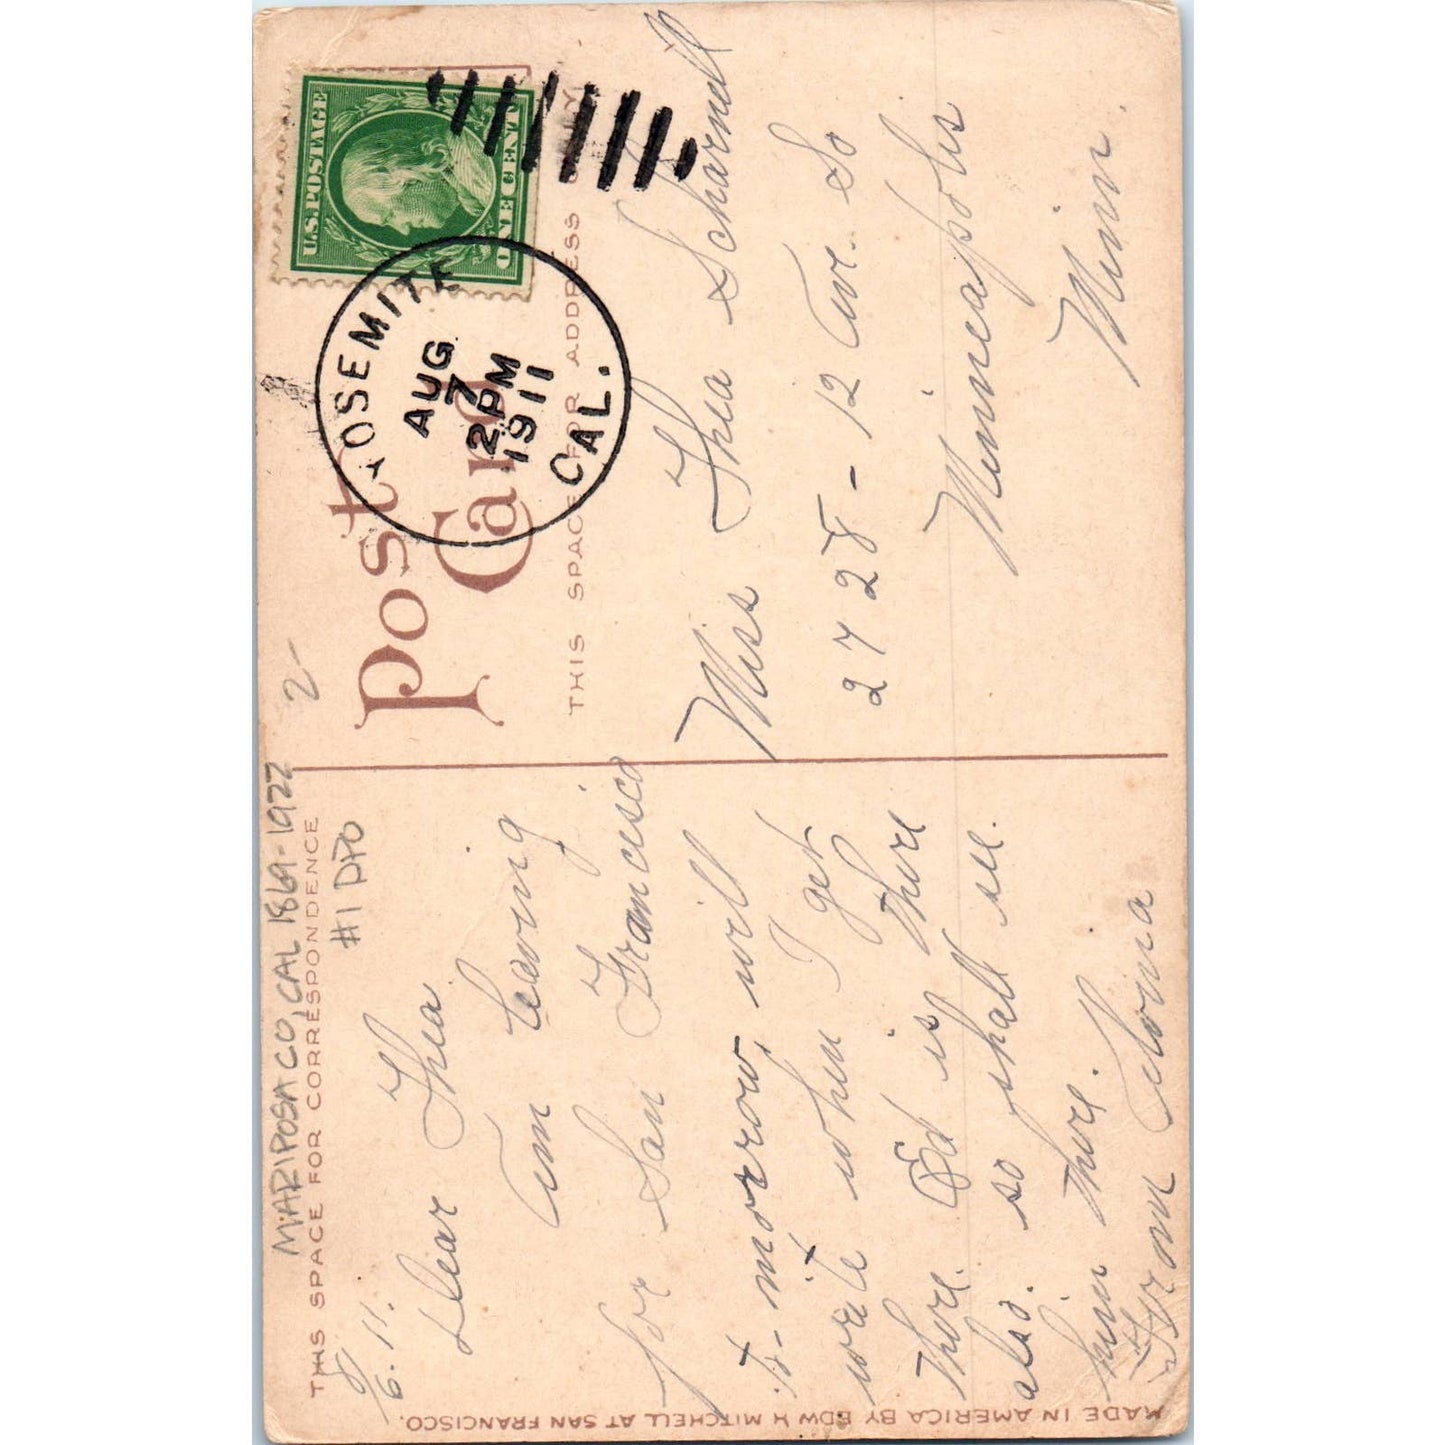 MARIPOSA CO, CAL 1869-1922
2-
#1 DPO
THIS SPACE FOR CORRESPONDENCE
Post
Card
THIS SPACE FOR ADDRESS ONLY
U.S. POSTAGE
ONE CENT
YOSEMITE
AUG
7
2 PM
1911
CAL.
8/6. 11.
Dear Thea
Am leaving
for San Francisco
to-morrow, will
write when I get
there. Ed is there
also. so shall see
him there.
From
Miss Thea Scharndt
2728-12 Ave. So
Minneapolis
Minn.
MADE IN AMERICA BY EDW H MITCHELL AT SAN FRANCISCO.